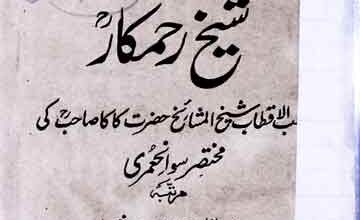 شیخ رحمکارؒ
الاقطاب شیخ المشائخ حضرت کاکا صاحبؒ کی
مختصر سوانحعمری
مرتبہ